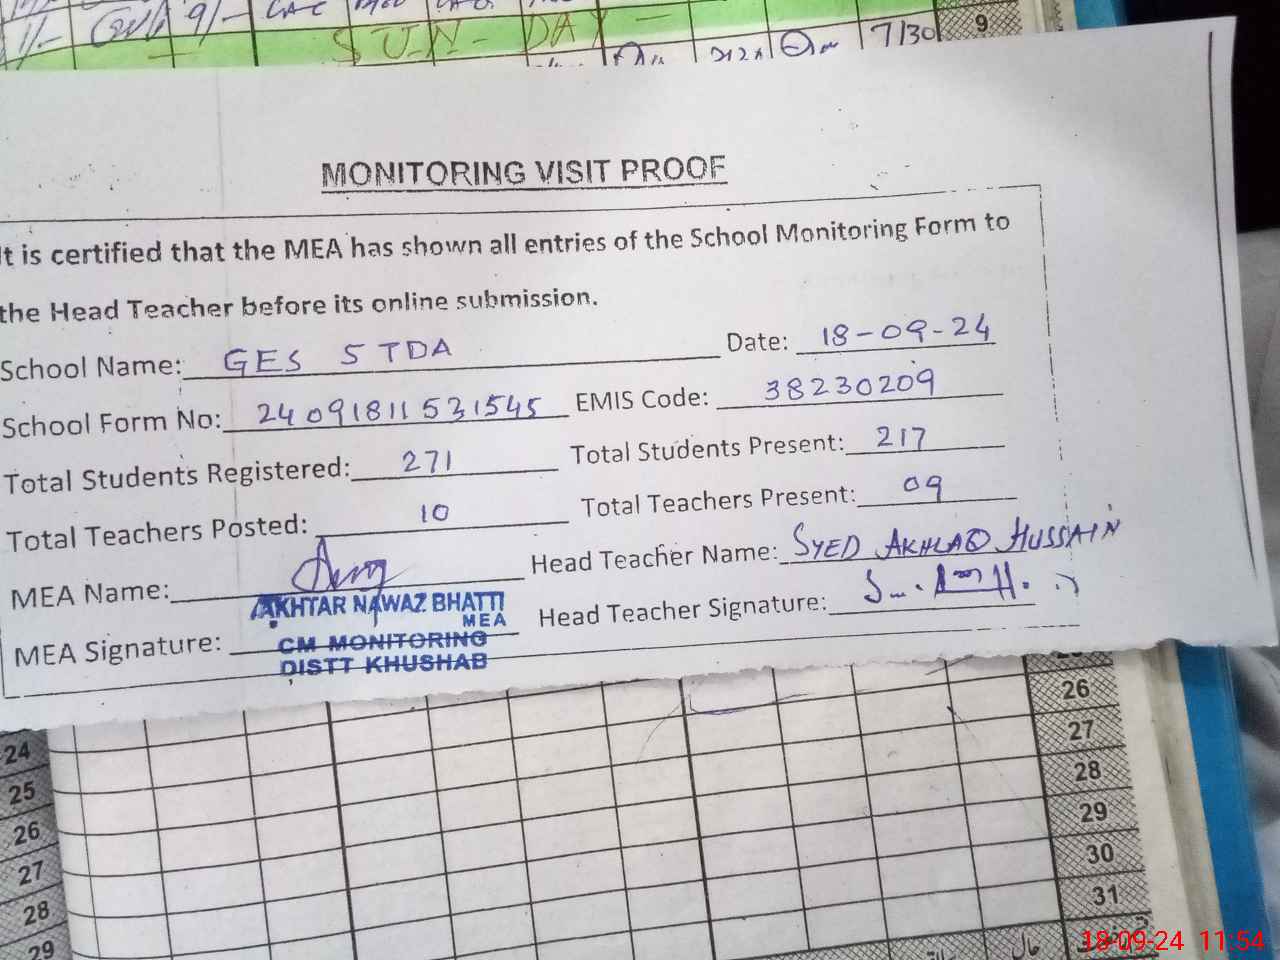 SUN-DAY
7/30
9
MONITORING VISIT PROOF
It is certified that the MEA has shown all entries of the School Monitoring Form to
the Head Teacher before its online submission.
School Name: GES 5 TDA Date: 18-09-24
School Form No: 24091811531545 EMIS Code: 38230209
Total Students Registered: 271 Total Students Present: 217
Total Teachers Posted: 10 Total Teachers Present: 09
MEA Name: Head Teacher Name: SYED AKHLAQ HUSSAIN
AKHTAR NAWAZ BHATTI
MEA
MEA Signature: Head Teacher Signature:
CM MONITORING
DISTT KHUSHAB
24
25
26
27
28
29
26
27
28
29
30
31
حال
18-09-24 11:54